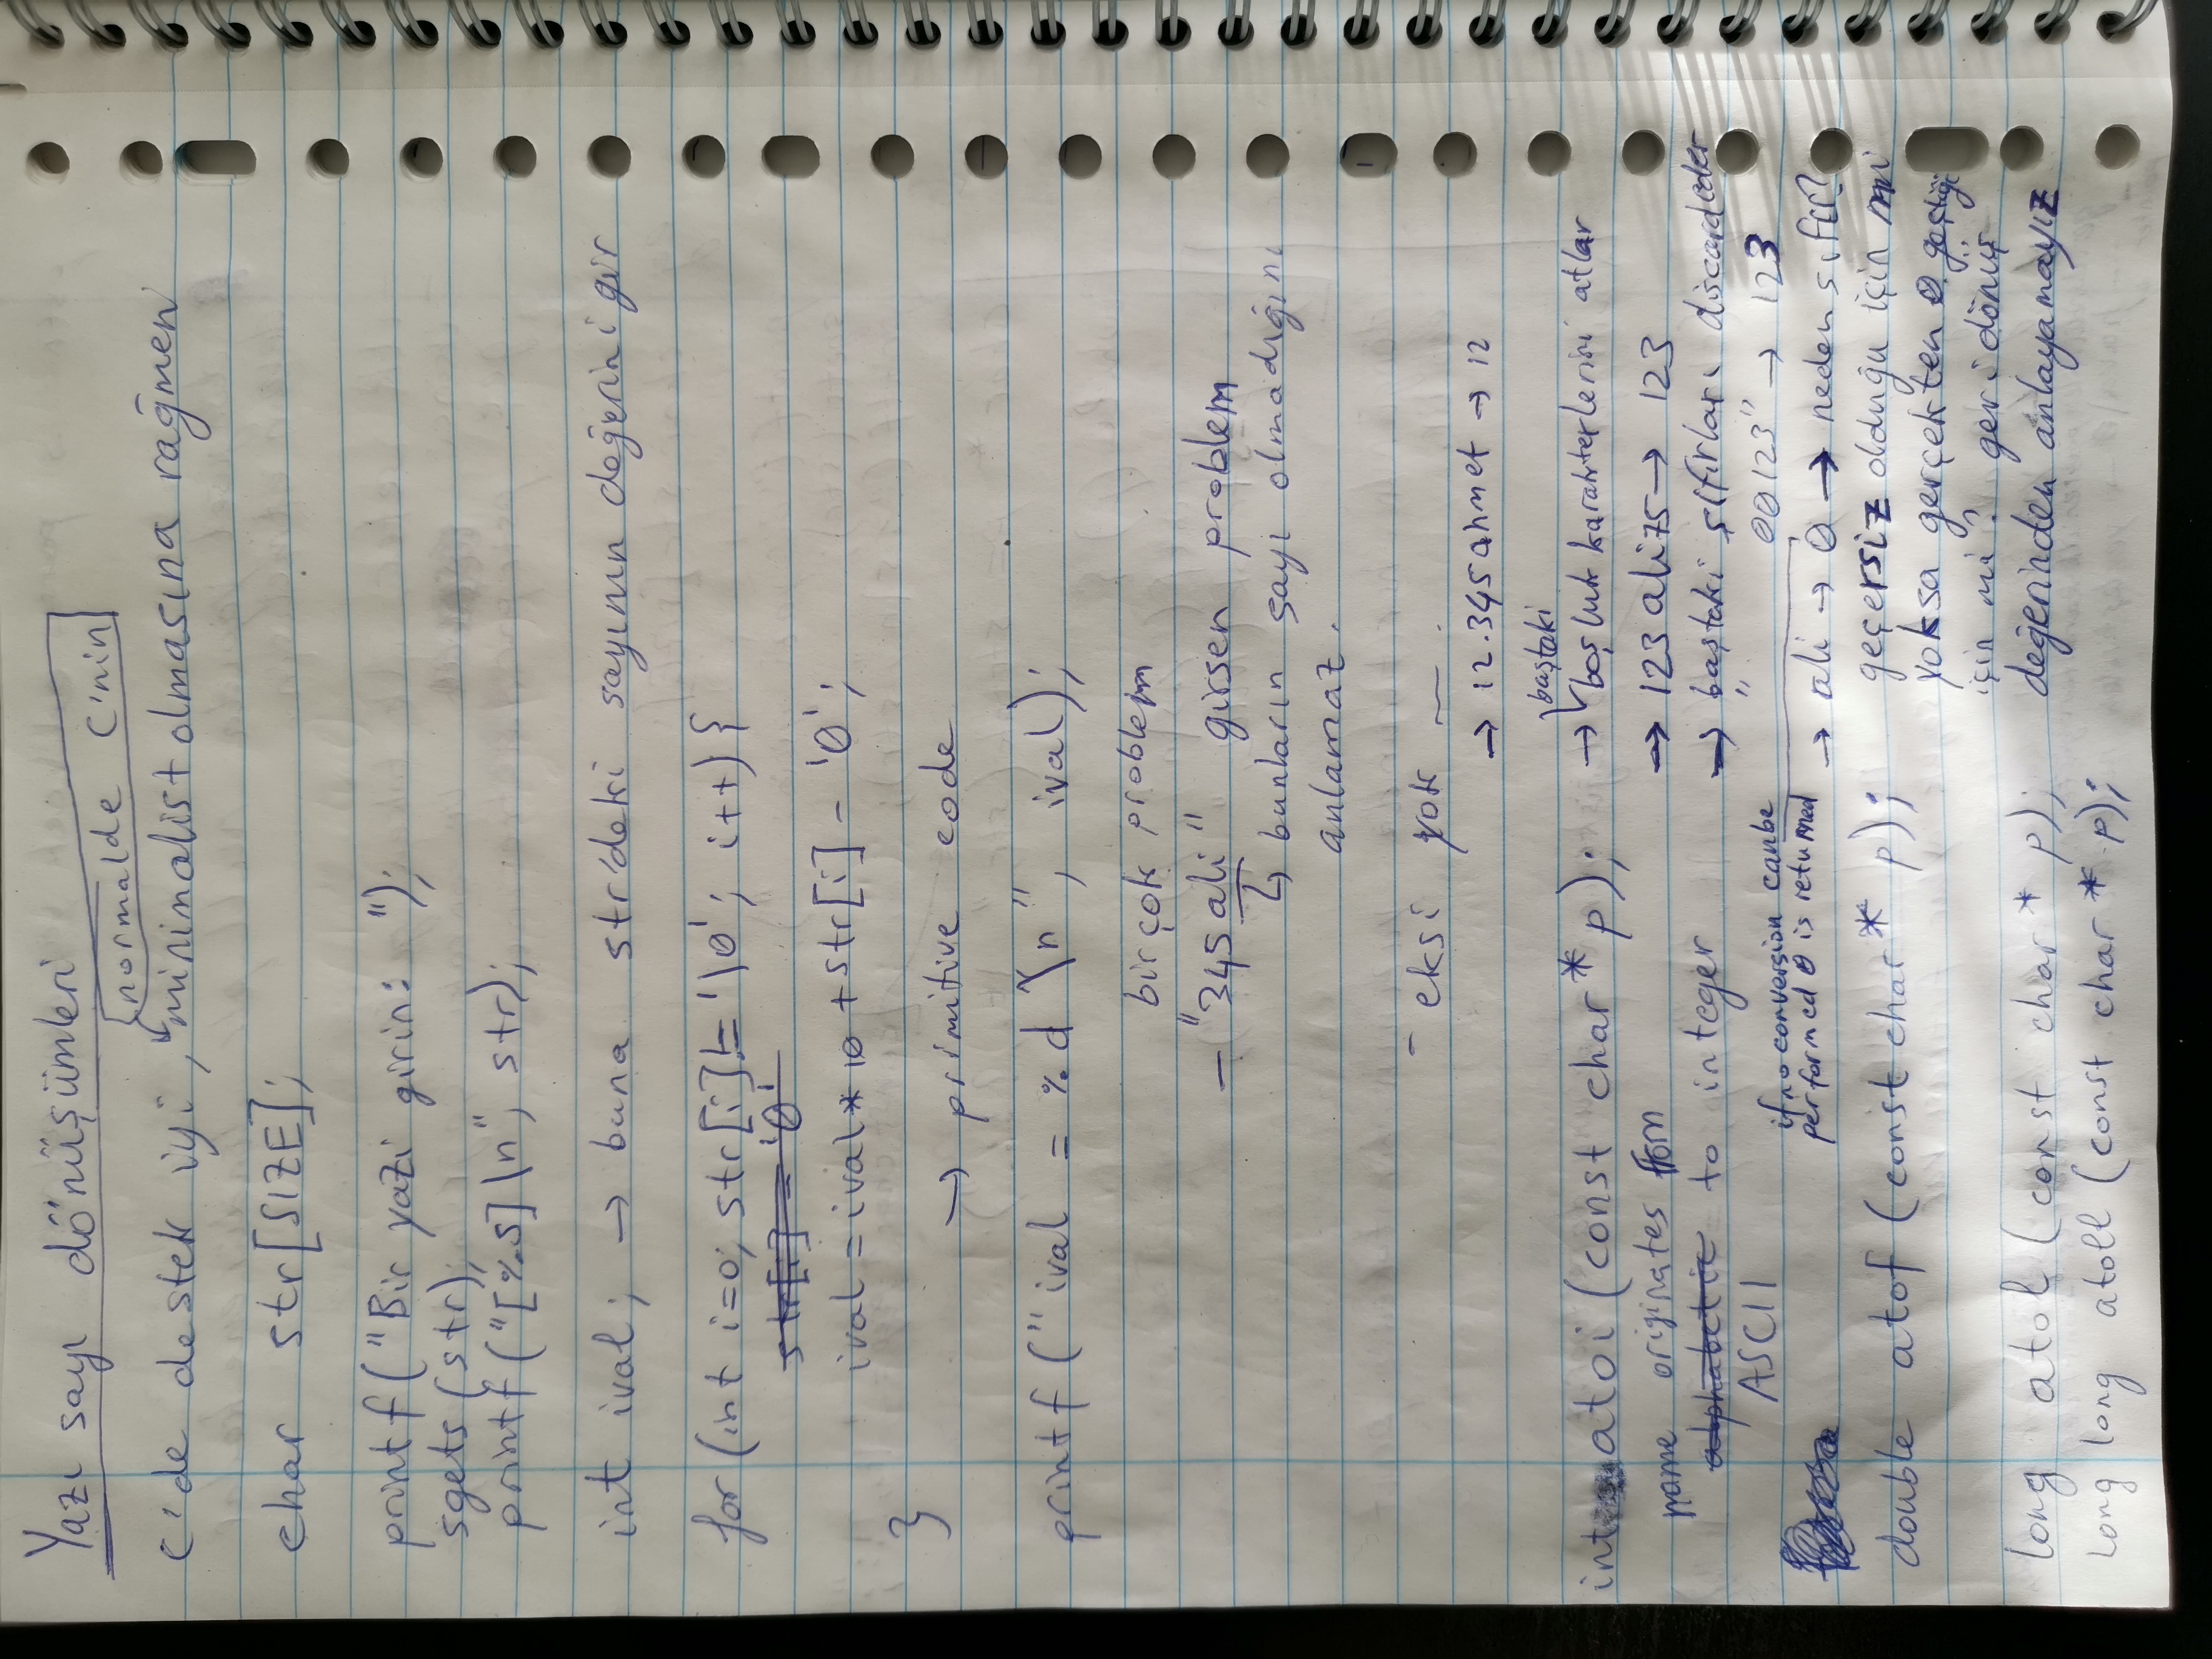 Yazı sayı dönüşümleri
normalde C'nin
C'de destek iyi, minimalist olmasına rağmen
char str[SIZE];
printf("Bir yazi girin: ");
sgets(str);
printf("[%s]\n", str);
int ival; → buna str'deki sayının değerini gir
for (int i=0; str[i]!='\0'; i++) {
str[i] - '0'
ival = ival * 10 + str[i] - '0';
}
→ primitive code
printf("ival = %d \n", ival);
birçok problem
- "345ali" girsen problem
↳ bunların sayı olmadığını
anlamaz.
- eksi yok
→ 12.345ahmet → 12
int atoi (const char* p);
→ baştaki boşluk karakterlerini atlar
name originates from
alphabetic to integer
ASCII
→ 123ali75 → 123
→ baştaki sıfırları discard eder
"00123" → 123
if no conversion can be
performed 0 is returned
→ ali → 0 → neden sıfır?
geçersiz olduğu için mi
yoksa gerçekten 0 geçtiği
için mi? geri dönüş
değerinden anlayamayız
double atof (const char* p);
long atol (const char* p);
long long atoll (const char* p);